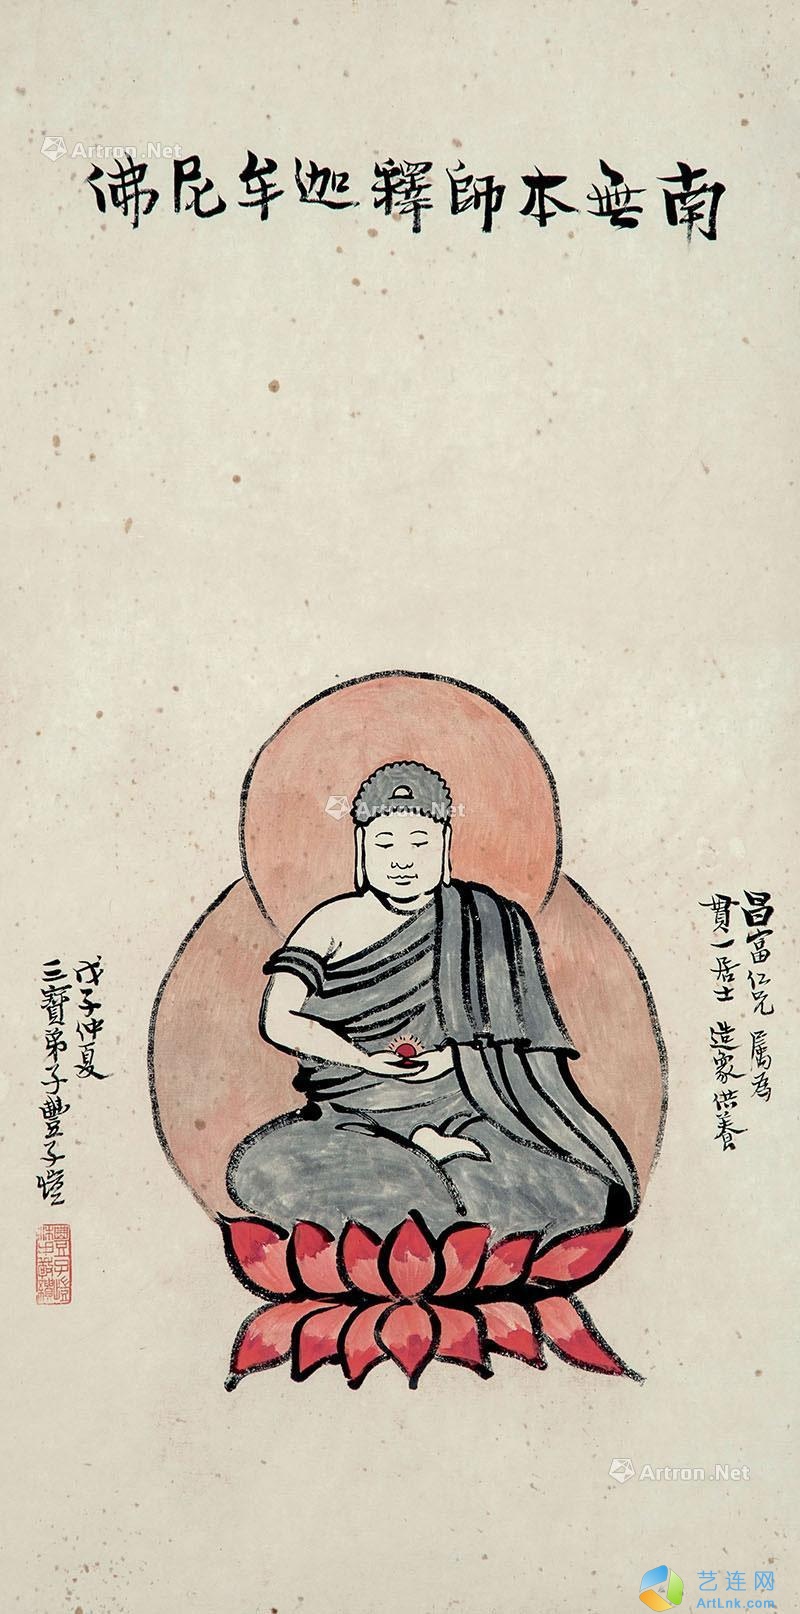 南無本師釋迦牟尼佛
昌富仁兄 屬為
貫一居士 造象供養
戊子仲夏
三寶弟子豐子愷
Artron.Net
Artron.Net
Artron.Net
艺连网
ArtLnk.com